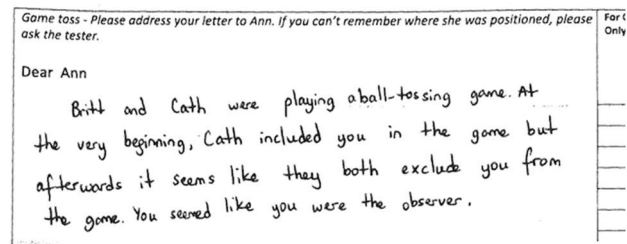 Game toss - Please address your letter to Ann. If you can't remember where she was positioned, please
ask the tester.
For
Only
Dear Ann
Britt and Cath were playing a ball-tossing game. At
the very beginning, Cath included you in the game but
afterwards it seems like they both exclude you from
the game. You seemed like you were the observer.